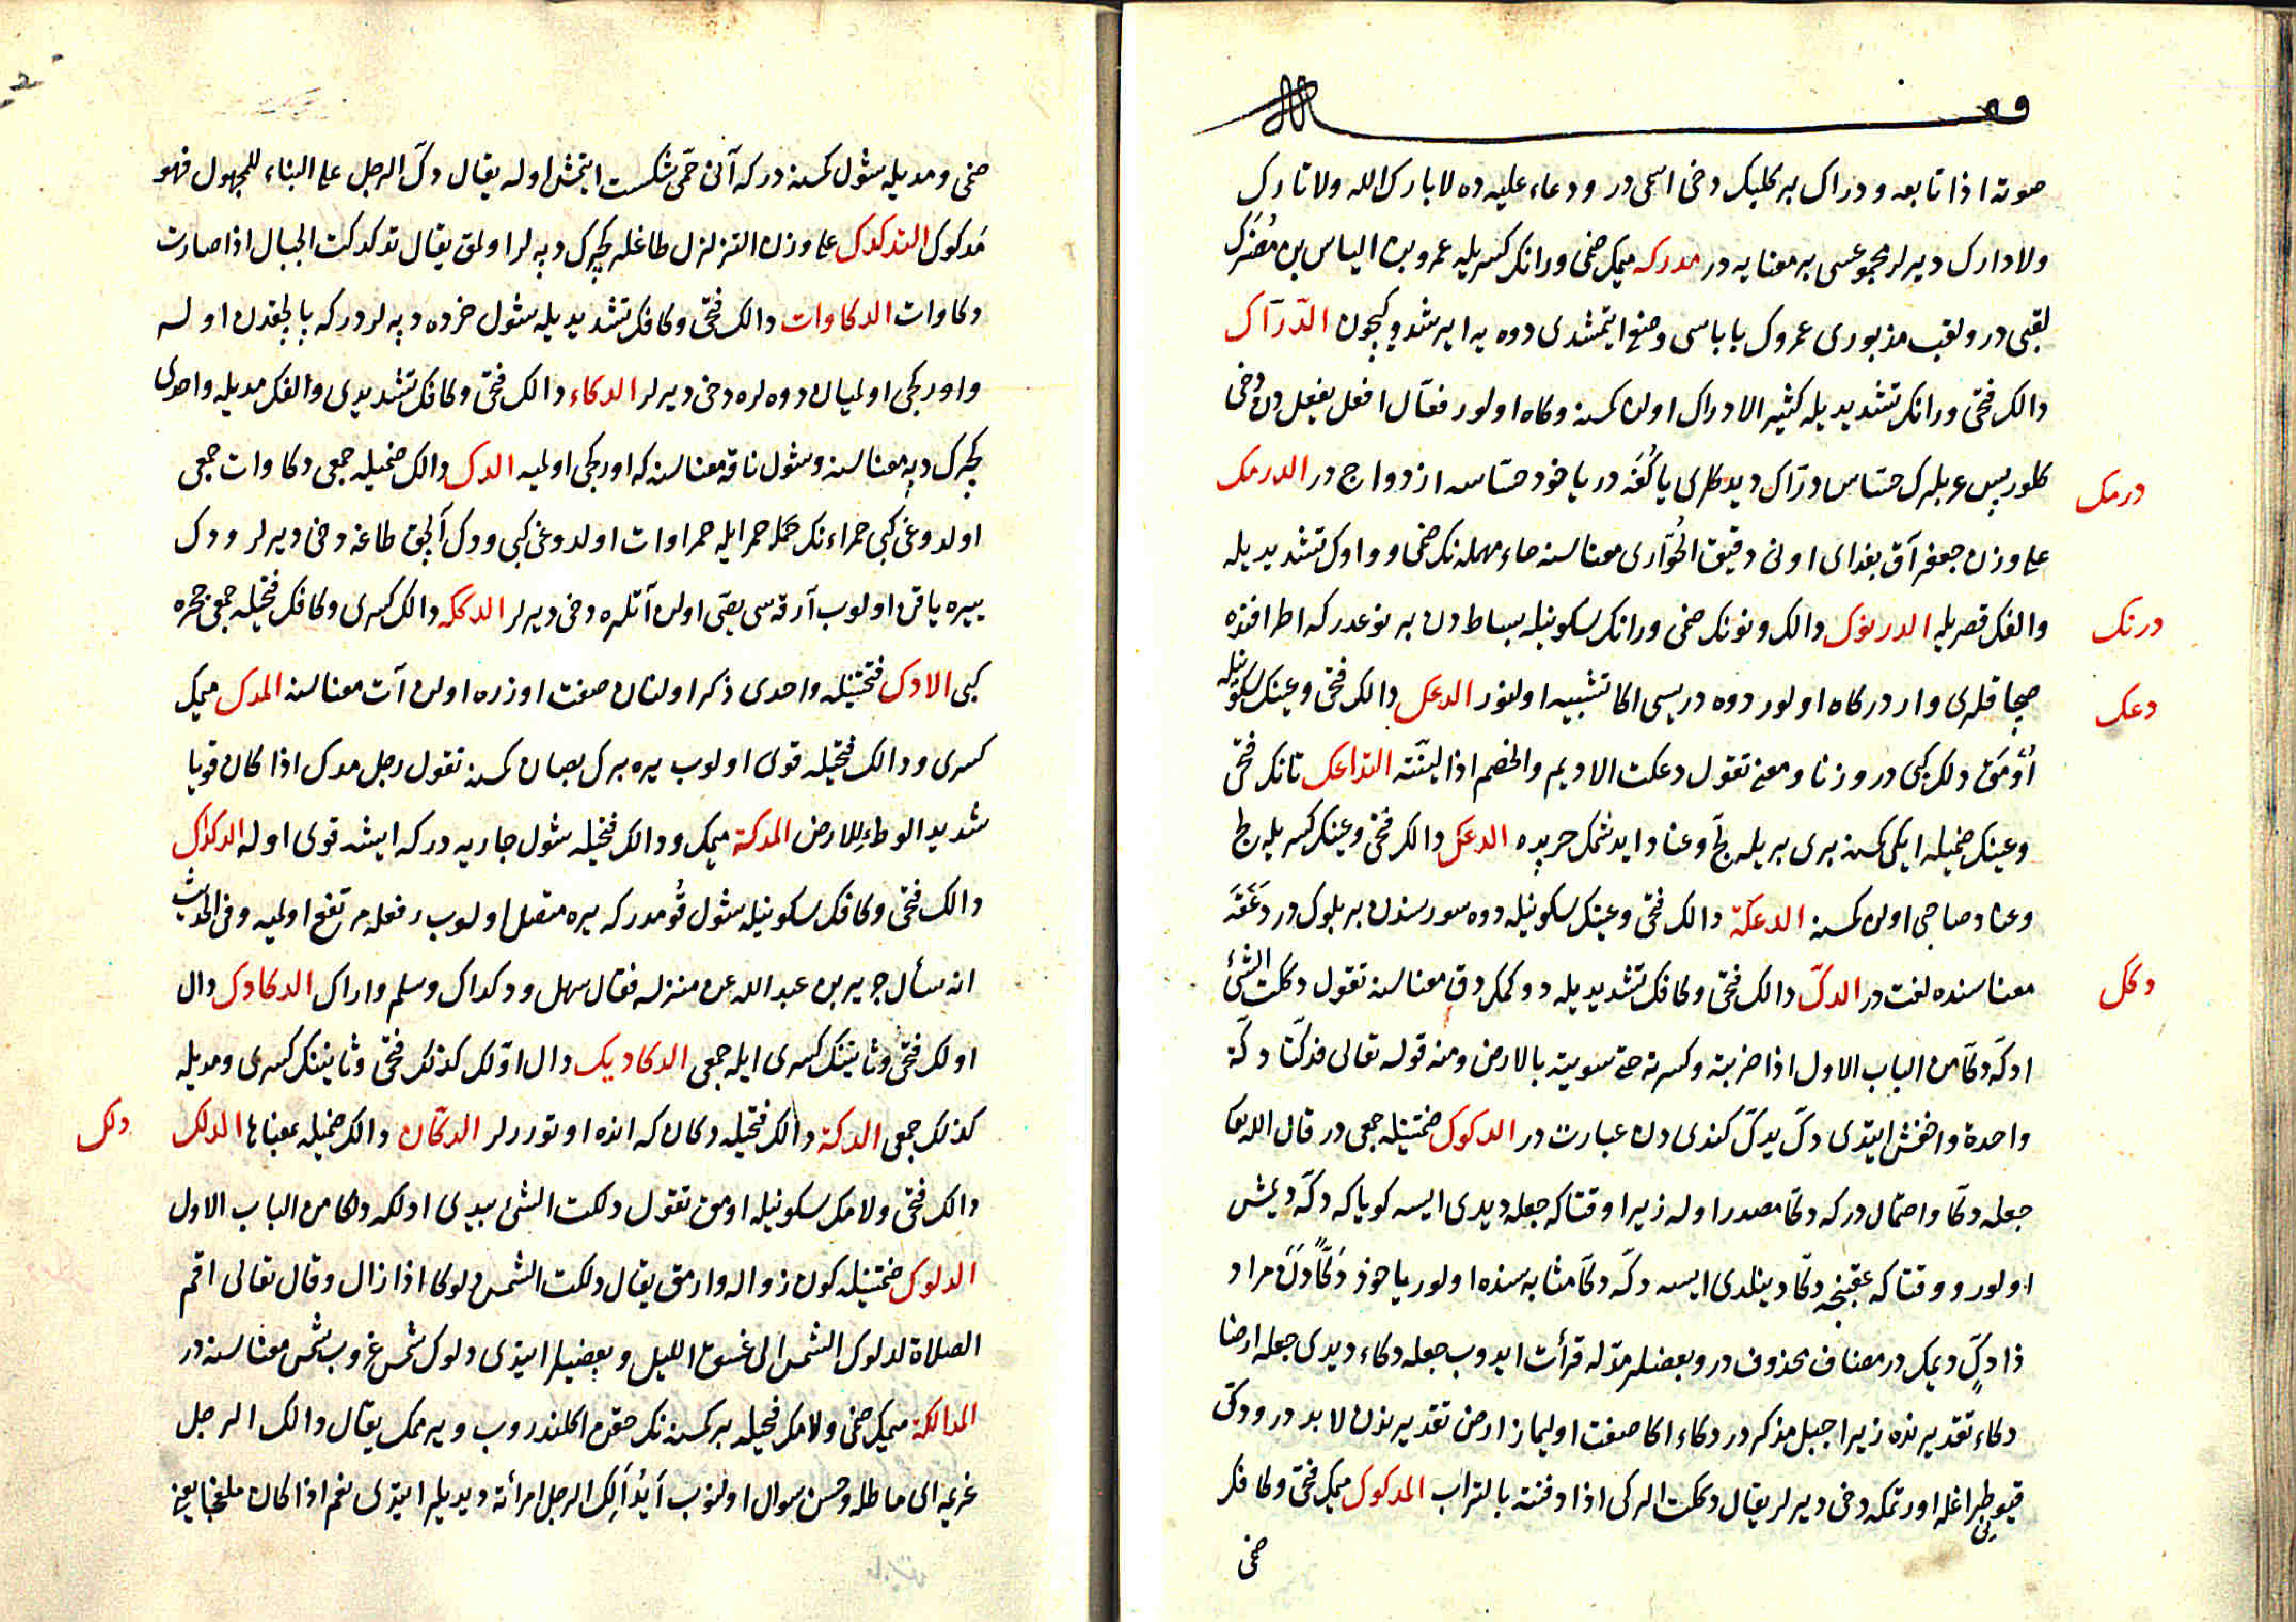 وقف لله
صوته اذا تابعه ودراك بر كلبك دخی اسمی در ودعاء علیه ده لا بارك الله ولا تارك
ولا دارك دیرلر مجموعسی بر معنایه در مدركه میمك ضمی ورانك كسریله عمرو بن الیاس بن مضرك
لقبی در ولقب مذبوری عمروك باباسی وضع ایتمشدی دوه یه ایرشدوكیچون الدرّاك
دالك فتحی ورانك تشدیدیله كثیر الادراك اولن كمسنه وكاه اولور فعّال افعل یفعل دن دخی
كلور پس عربلرك حسّاس درّاك دیدكلری یا لغة در یاخود حسّاسه ازدواج در الدرمك
درمك
علی وزن جعفر آق بغدای اونی دقیق الحُوّاری معناسنه حاء مهمله نك ضمی وواوك تشدیدیله
والفك قصریله الدرنوك دالك ونونك ضمی ورانك سكونیله بساط دن بر نوعدر كه اطرافنده
درنك
صچاقلری واردر كاه اولور دوه دریسی اكا تشبیه اولنور الدعك دالك فتحی وعینك سكونیله
دعك
اومق دلك كبی در وزنا ومعنی تقول دعكت الادیم والخصم اذا لیّنته التداعك تانك فتحی
وعینك ضمیله ایكی كمسنه بری بریله لجّ وعناد ایدشمك حربده الدعك دالك فتحی وعینك كسریله لج
وعناد صاحبی اولن كمسنه الدعكة دالك فتحی وعینك سكونیله دوه سورسندن بر بلوك در دعقة
معناسنده لغت در الدكّ دالك فتحی وكافك تشدیدیله دوكمك دق معناسنه تقول دككت الشیٔ
دكك
ادكّه دكّا من الباب الاول اذا ضربته وكسرته حتی سویته بالارض ومنه قوله تعالی فدكّتا دكّة
واحدة واخفش ایتدی دكّ یدكّ كندی دن عبارت در الدكوك ضمتینله جمعی در قال الله تعا
جعله دكّا واحتمال در كه دكّا مصدر اوله زیرا وقتا كه جعله دیدی ایسه كویا كه دكّه دیمش
اولور ووقتا كه عقبنجه دكّا دینلدی ایسه دكّه دكّا مثابه سنده اولور یاخوذ دكّا دن مراد
ذا دكٍّ دیمك در مضاف محذوف در وبعضلر مدّله قرأت ایدوب جعله دكاء دیدی جعله ارضا
دكاء تقدیرنده زیرا جبل مذكر در دكاء اكا صفت اولیماز ارض تقدیرندن لابد در ودكّ
قیویی طپراغله اورتمكه دخی دیرلر یقال دككت الركی اذا دفنته بالتراب المدكوك میمك فتحی وكافك
ضمی
ضمی ومدیله شول كمسنه در كه آنی حمّی شكست ایتمش اوله یقال دكّ الرجل علی البناء للمجهول فهو
مدكوك التدكدك علی وزن التزلزل طاغلر كچرك دپه لر اولمق یقال تدكدكت الجبال اذا صارت
دكاوات الدكاوات دالك فتحی وكافك تشدیدیله شول خرده دپه لردر كه بالچقدن اوله
واوركجی اولمیان دوه لره دخی دیرلر الدكاء دالك فتحی وكافك تشدیدی والفك مدیله واحدی
كچرك دپه معناسنه وشول ناقه معناسنه كه اوركجی اولمیه الدك دالك ضمیله جمعی دكاوات جمعی
اولدوغی كبی حمراءنك جمله حمر ایله حمراوات اولدوغی كبی ودك آلچق طاغه دخی دیرلر ودك
ییره یاقن اولوب آرقه سی یصی اولن آتلره دخی دیرلر الدككه دالك كسری وكافك فتحیله جمعی حجره
كبی الادك فتحتینله واحدی ذكر اولنان صفت اوزره اولن آت معناسنه المدك میمك
كسری ودالك فتحیله قوی اولوب ییره برك بصان كمسنه تقول رجل مدك اذا كان قویا
شدید الوطء للارض المدكة میمك ودالك فتحیله شول جاریه در كه ایشه قوی اوله الدكداك
دالك فتحی وكافك سكونیله شول قومدر كه ییره متصل اولوب رفعله مرتفع اولمیه وفی الحدیث
انه سأل جریر بن عبد الله عن منزله فقال سهل ودكداك وسلم واراك الدكادك دال
اولك فتحی وثانینك كسری ایله جمعی الدكادیك دال اوّلك كذلك فتحی وثانینك كسری ومدیله
كذلك جمعی الدكة دالك فتحیله دكان كه انده اوتوررلر الدكّان دالك ضمیله بمعناها الدلك
دلك
دالك فتحی ولامك سكونیله اومق تقول دلكت الشیٔ بیدی ادلكه دلكا من الباب الاول
الدلوك ضمتینله كون زواله وارمق یقال دلكت الشمس دلوكا اذا زال وقال تعالی اقم
الصلاة لدلوك الشمس الی غسق اللیل وبعضیلر ایتدی دلوك شمس غروب شمس معناسنه در
المدالكة میمك ضمی ولامك فتحیله بر كمسنه نك حقن اكلندروب ویرممك یقال دالك الرجل
غریمه ای ماطله وحسن سوال اولنوب أیُدالك الرجل امرأته دیدیلر ایتدی نعم اذا كان ملفجا یعنی